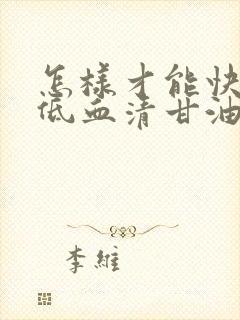 怎樣才能快
低血清甘油
李維